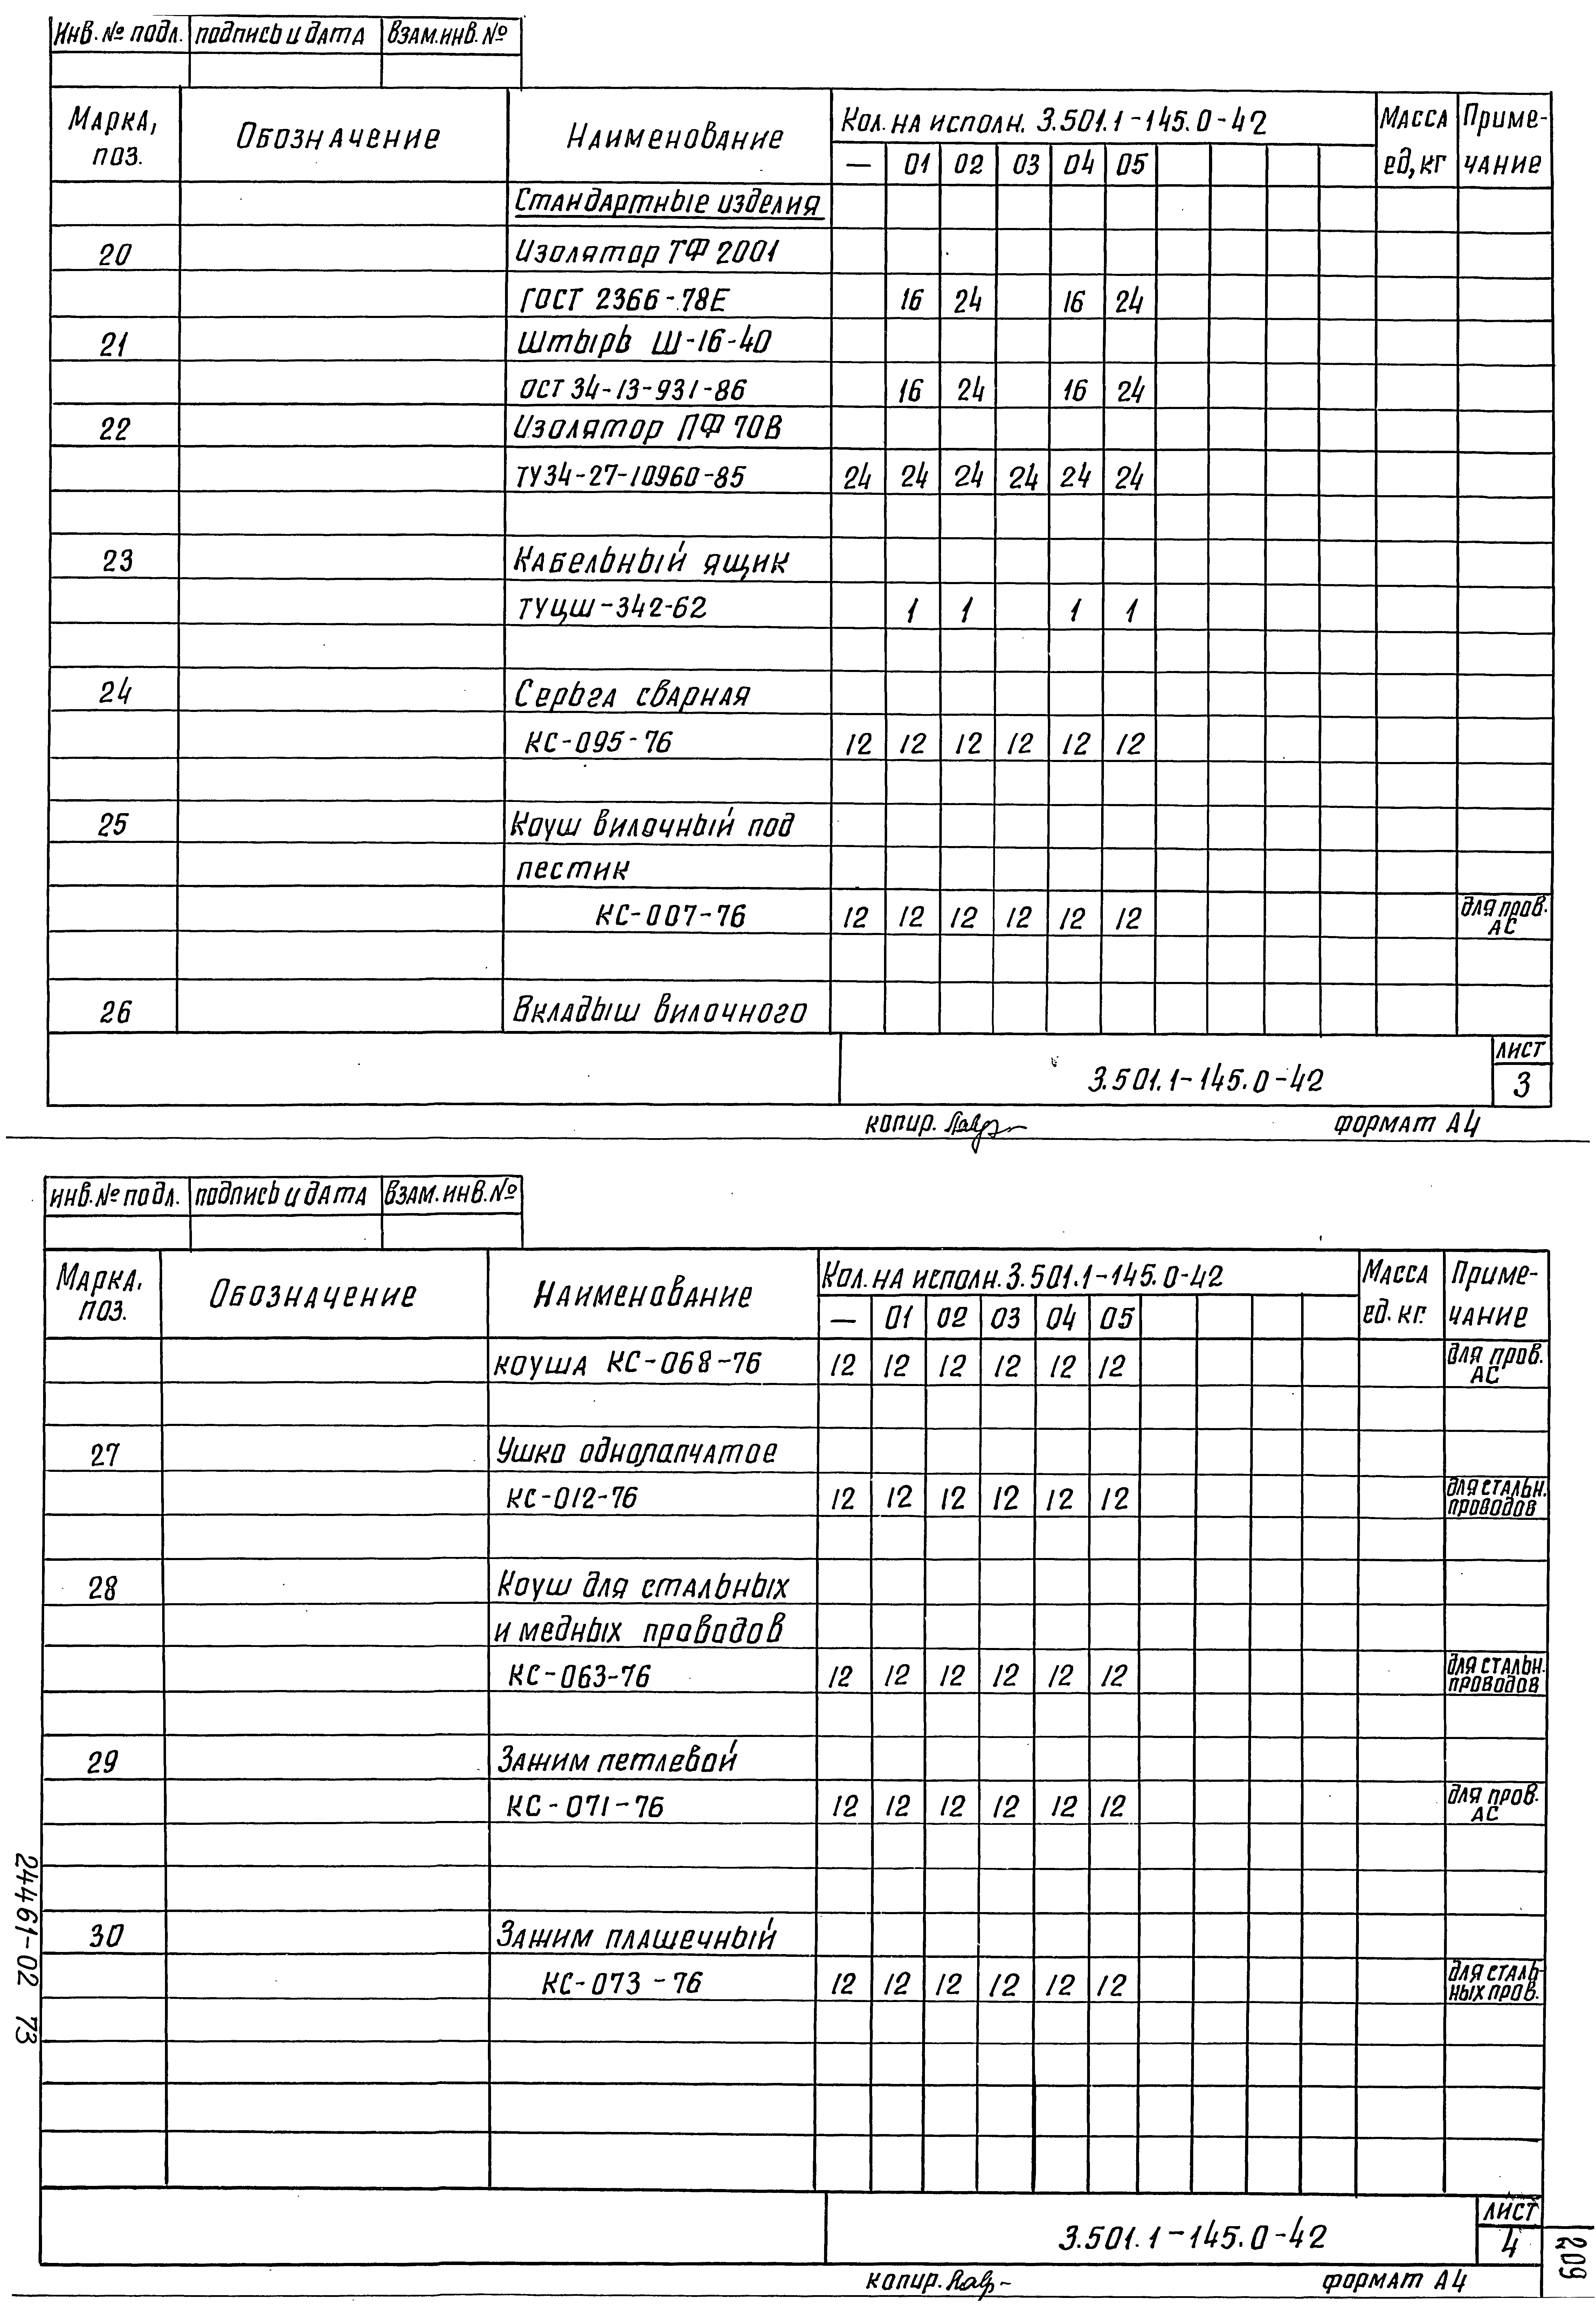 Инв. № подл. подпись и дата взам. инв. №
Марка, поз. Обозначение Наименование Кол. на исполн. 3.501.1-145.0-42 Масса ед, кг Приме-чание
— 01 02 03 04 05
Стандартные изделия
20 Изолятор ТФ 2001
ГОСТ 2366-78Е 16 24 16 24
21 Штырь Ш-16-40
ОСТ 34-13-931-86 16 24 16 24
22 Изолятор ПФ 70В
ТУ34-27-10960-85 24 24 24 24 24 24
23 Кабельный ящик
ТУЦШ-342-62 1 1 1 1
24 Серьга сварная
КС-095-76 12 12 12 12 12 12
25 Коуш вилочный под
пестик
КС-007-76 12 12 12 12 12 12 для пров. АС
26 Вкладыш вилочного
3.501.1-145.0-42 лист 3
копир. формат А4
инв. № подл. подпись и дата взам. инв. №
Марка, поз. Обозначение Наименование Кол. на исполн. 3.501.1-145.0-42 Масса ед. кг. Приме-чание
— 01 02 03 04 05
коуша КС-068-76 12 12 12 12 12 12 для пров. АС
27 Ушко однолапчатое
КС-012-76 12 12 12 12 12 12 для стальн. проводов
28 Коуш для стальных
и медных проводов
КС-063-76 12 12 12 12 12 12 для стальн. проводов
29 Зажим петлевой
КС-071-76 12 12 12 12 12 12 для пров. АС
30 Зажим плашечный
КС-073-76 12 12 12 12 12 12 для сталь-ных пров.
3.501.1-145.0-42 лист 4
копир. формат А4
24461-02 73
209